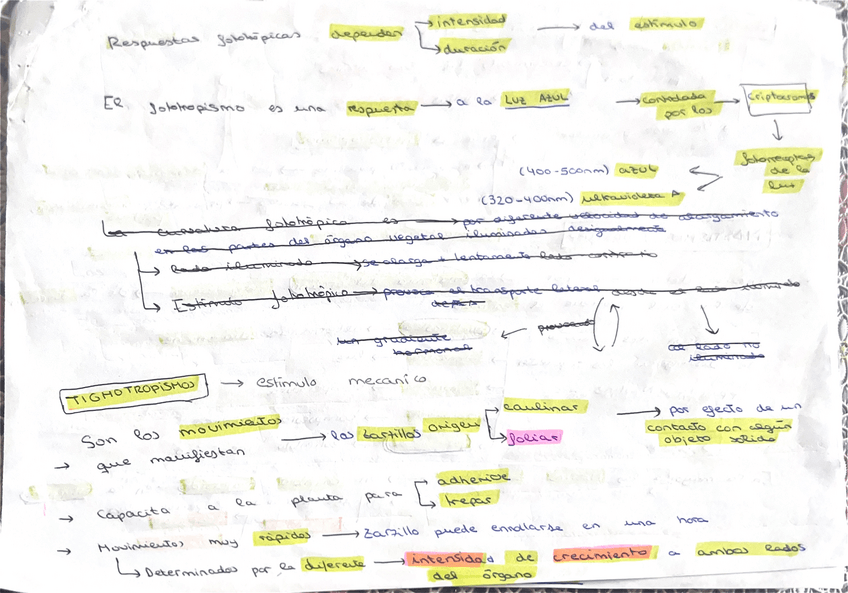 Respuestas fototópicas dependen → intensidad → del estímulo
→ duración
El fototropismo es una respuesta → a la LUZ AZUL → controlada por los → criptocromos
fotorreceptores de la luz
(400-500nm) azul
(320-400nm) ultravioleta A
La curvatura fototrópica es → por diferente velocidad de alargamiento
en las partes del órgano vegetal iluminadas desigualmente
→ lado iluminado → se alarga + lentamente lado contrario
→ Estímulo fototrópico → provoca el transporte lateral desde el lado iluminado
un gradiente hormonal ← provocando
al lado no iluminado
TIGMOTROPISMOS → estímulo mecánico
Son los movimientos → los zarcillos origen → caulinar → por efecto de un
→ foliar contacto con algún
objeto sólido
→ que manifiestan
→ Capacita a la planta para → adherirse
→ trepar
→ Movimientos muy rápidos → Zarzillo puede enrollarse en una hora
→ Determinados por la diferente → intensidad de crecimiento a ambos lados
del órgano